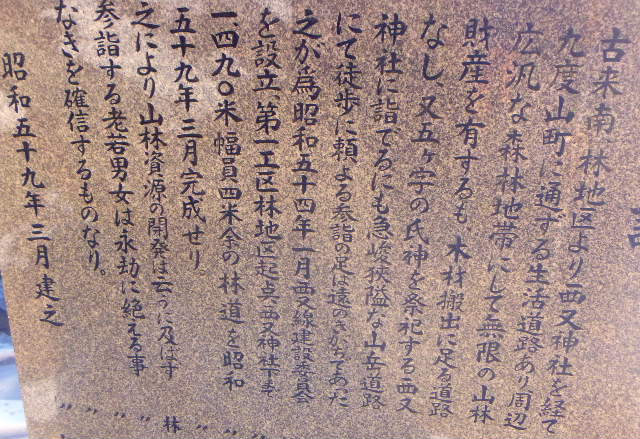 古来南、林地区より西又神社を経て
九度山町に通ずる生活道路あり周辺
広汎な森林地帯にして無限の山林
財産を有するも、木材搬出に足る道路
なし、又五ヶ字の氏神を祭祀する西又
神社に詣でるにも急峻狭隘な山岳道路
にて徒歩に頼よる参詣の足は遠のきがちであった
之が為昭和五十四年一月西又線建設委員会
を設立、第一工区林地区起点西又神社下まで
一、四九〇米幅員四米余の林道を昭和
五十九年三月完成せり。
之により山林資源の開発は云うに及はず
参詣する老若男女は永劫に絶える事
なきを確信するものなり。
昭和五十九年三月建之
林